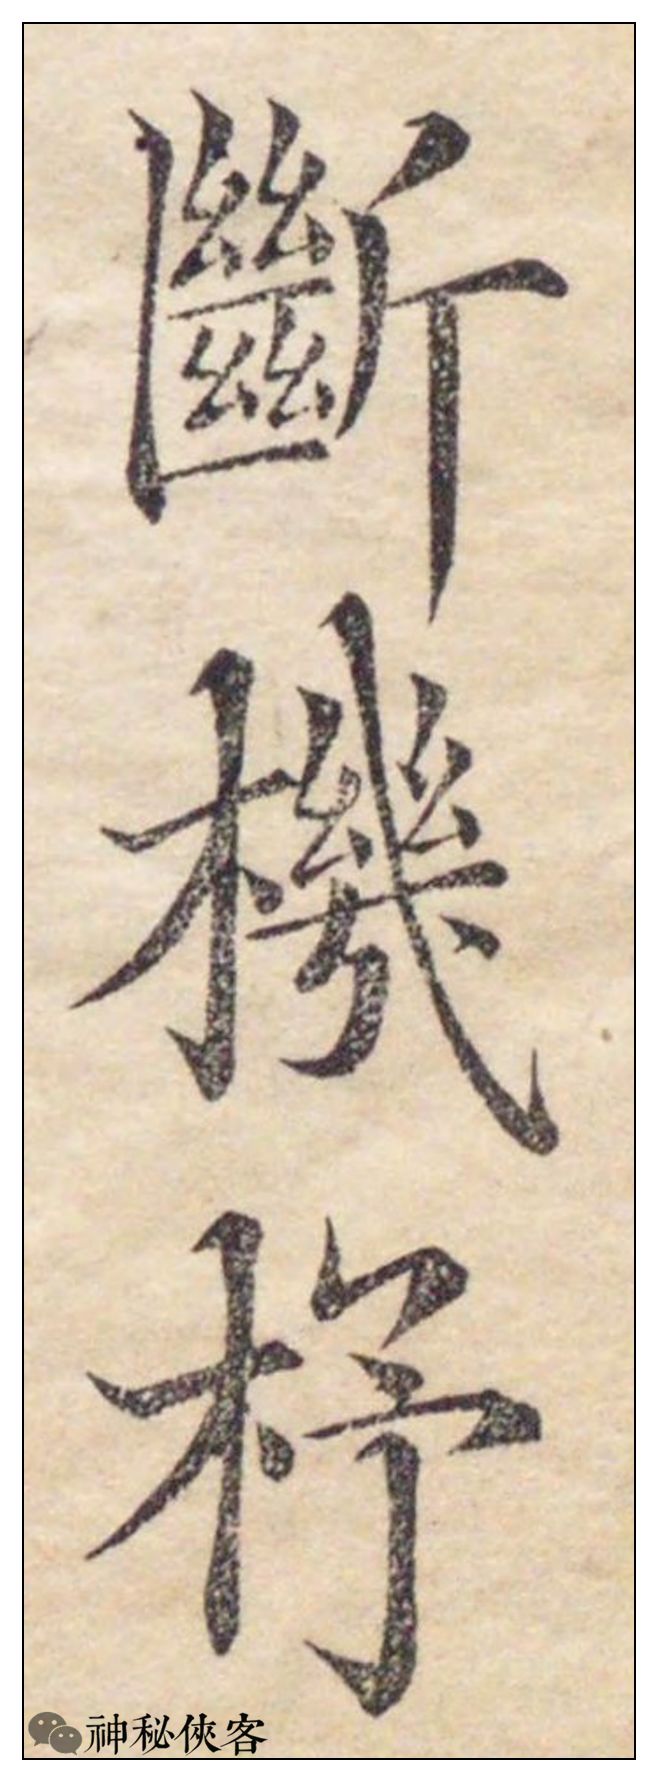 斷機杼
神秘俠客